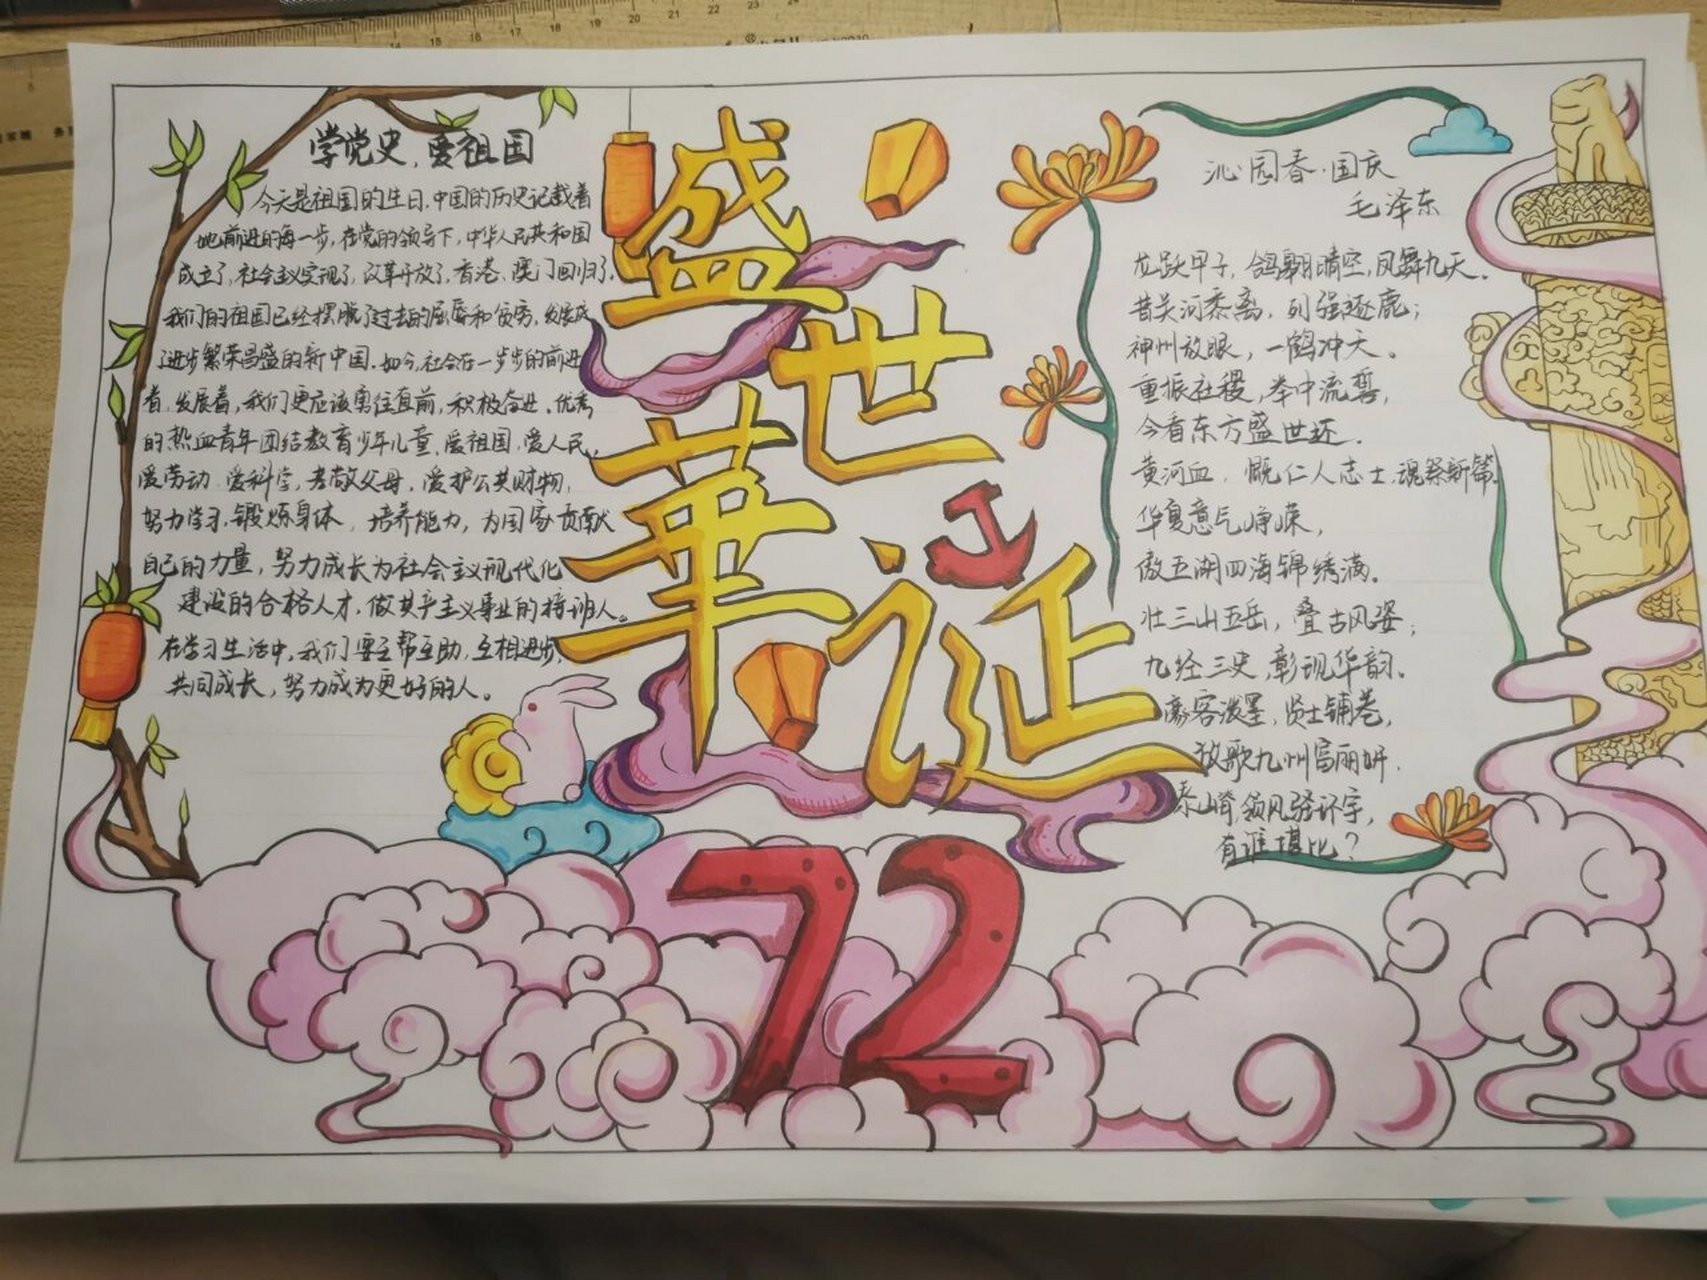 学党史，爱祖国
今天是祖国的生日，中国的历史记载着
她前进的每一步，在党的领导下，中华人民共和国
成立了，社会主义实现了，改革开放了，香港、澳门回归了，
我们的祖国已经摆脱了过去的屈辱和贫穷，发展成
了进步繁荣昌盛的新中国。如今，社会在一步步的前进
着，发展着，我们更应该勇往直前，积极奋进。优秀
的热血青年团结教育少年儿童，爱祖国，爱人民，
爱劳动，爱科学，孝敬父母，爱护公共财物，
努力学习，锻炼身体，培养能力，为国家贡献
自己的力量，努力成长为社会主义现代化
建设的合格人才，做共产主义事业的接班人。
在学习生活中，我们要互帮互助，互相进步，
共同成长，努力成为更好的人。
盛世華诞
72
沁园春·国庆
毛泽东
龙跃甲子，鸽翱晴空，凤舞九天。
昔关河黍离，列强逐鹿；
神州放眼，一鹤冲天。
重振社稷，举中流誓，
今看东方盛世还。
黄河血，慨仁人志士，魂祭新篇。
华夏意气峥嵘，
傲五湖四海锦绣满。
壮三山五岳，叠古风姿；
九经三史，彰现华韵。
豪客泼墨，贤士铺卷，
放歌九州富丽妍。
泰山脊，领风骚环宇，
有谁堪比？
14 15 16 17 18 19 20 21 22 23 24